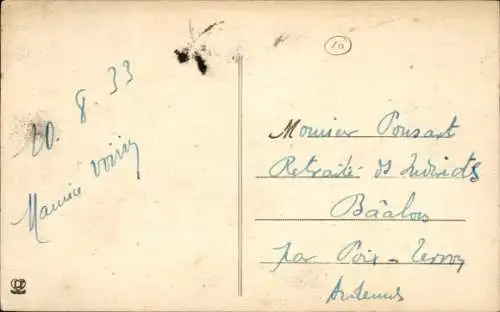 10
20. 8. 33
Maurice Voirin
Monsieur Ponsart
Retraité ds Indirects
Bâalons
par Poix-Terron
Ardennes